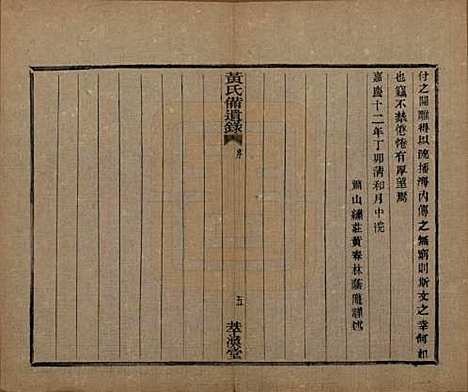 付之開雕得以流播海內傳之無窮則斯文之幸何如
也竊不禁倦倦有厚望焉
嘉慶十二年丁卯清和月中浣
蕭山繡莊黃春林蔭隴謹述
黃氏備遺錄
序
五
萃渙堂